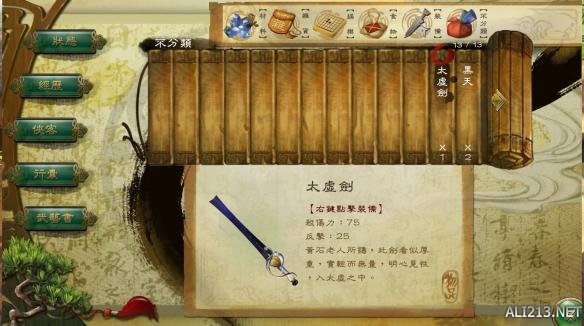 材料
雜貨
食物
裝備
不分類
13 / 13
不分類
狀態
經歷
俠客
行囊
武藝書
太虛劍
X
1
黑天
X
2
太虛劍
【右鍵點擊裝備】
殺傷力：75
反擊：25
黃石老人所謂，此劍看似厚
重，實輕而無量，明心見性
，入太虛之中。
ALI213.NET